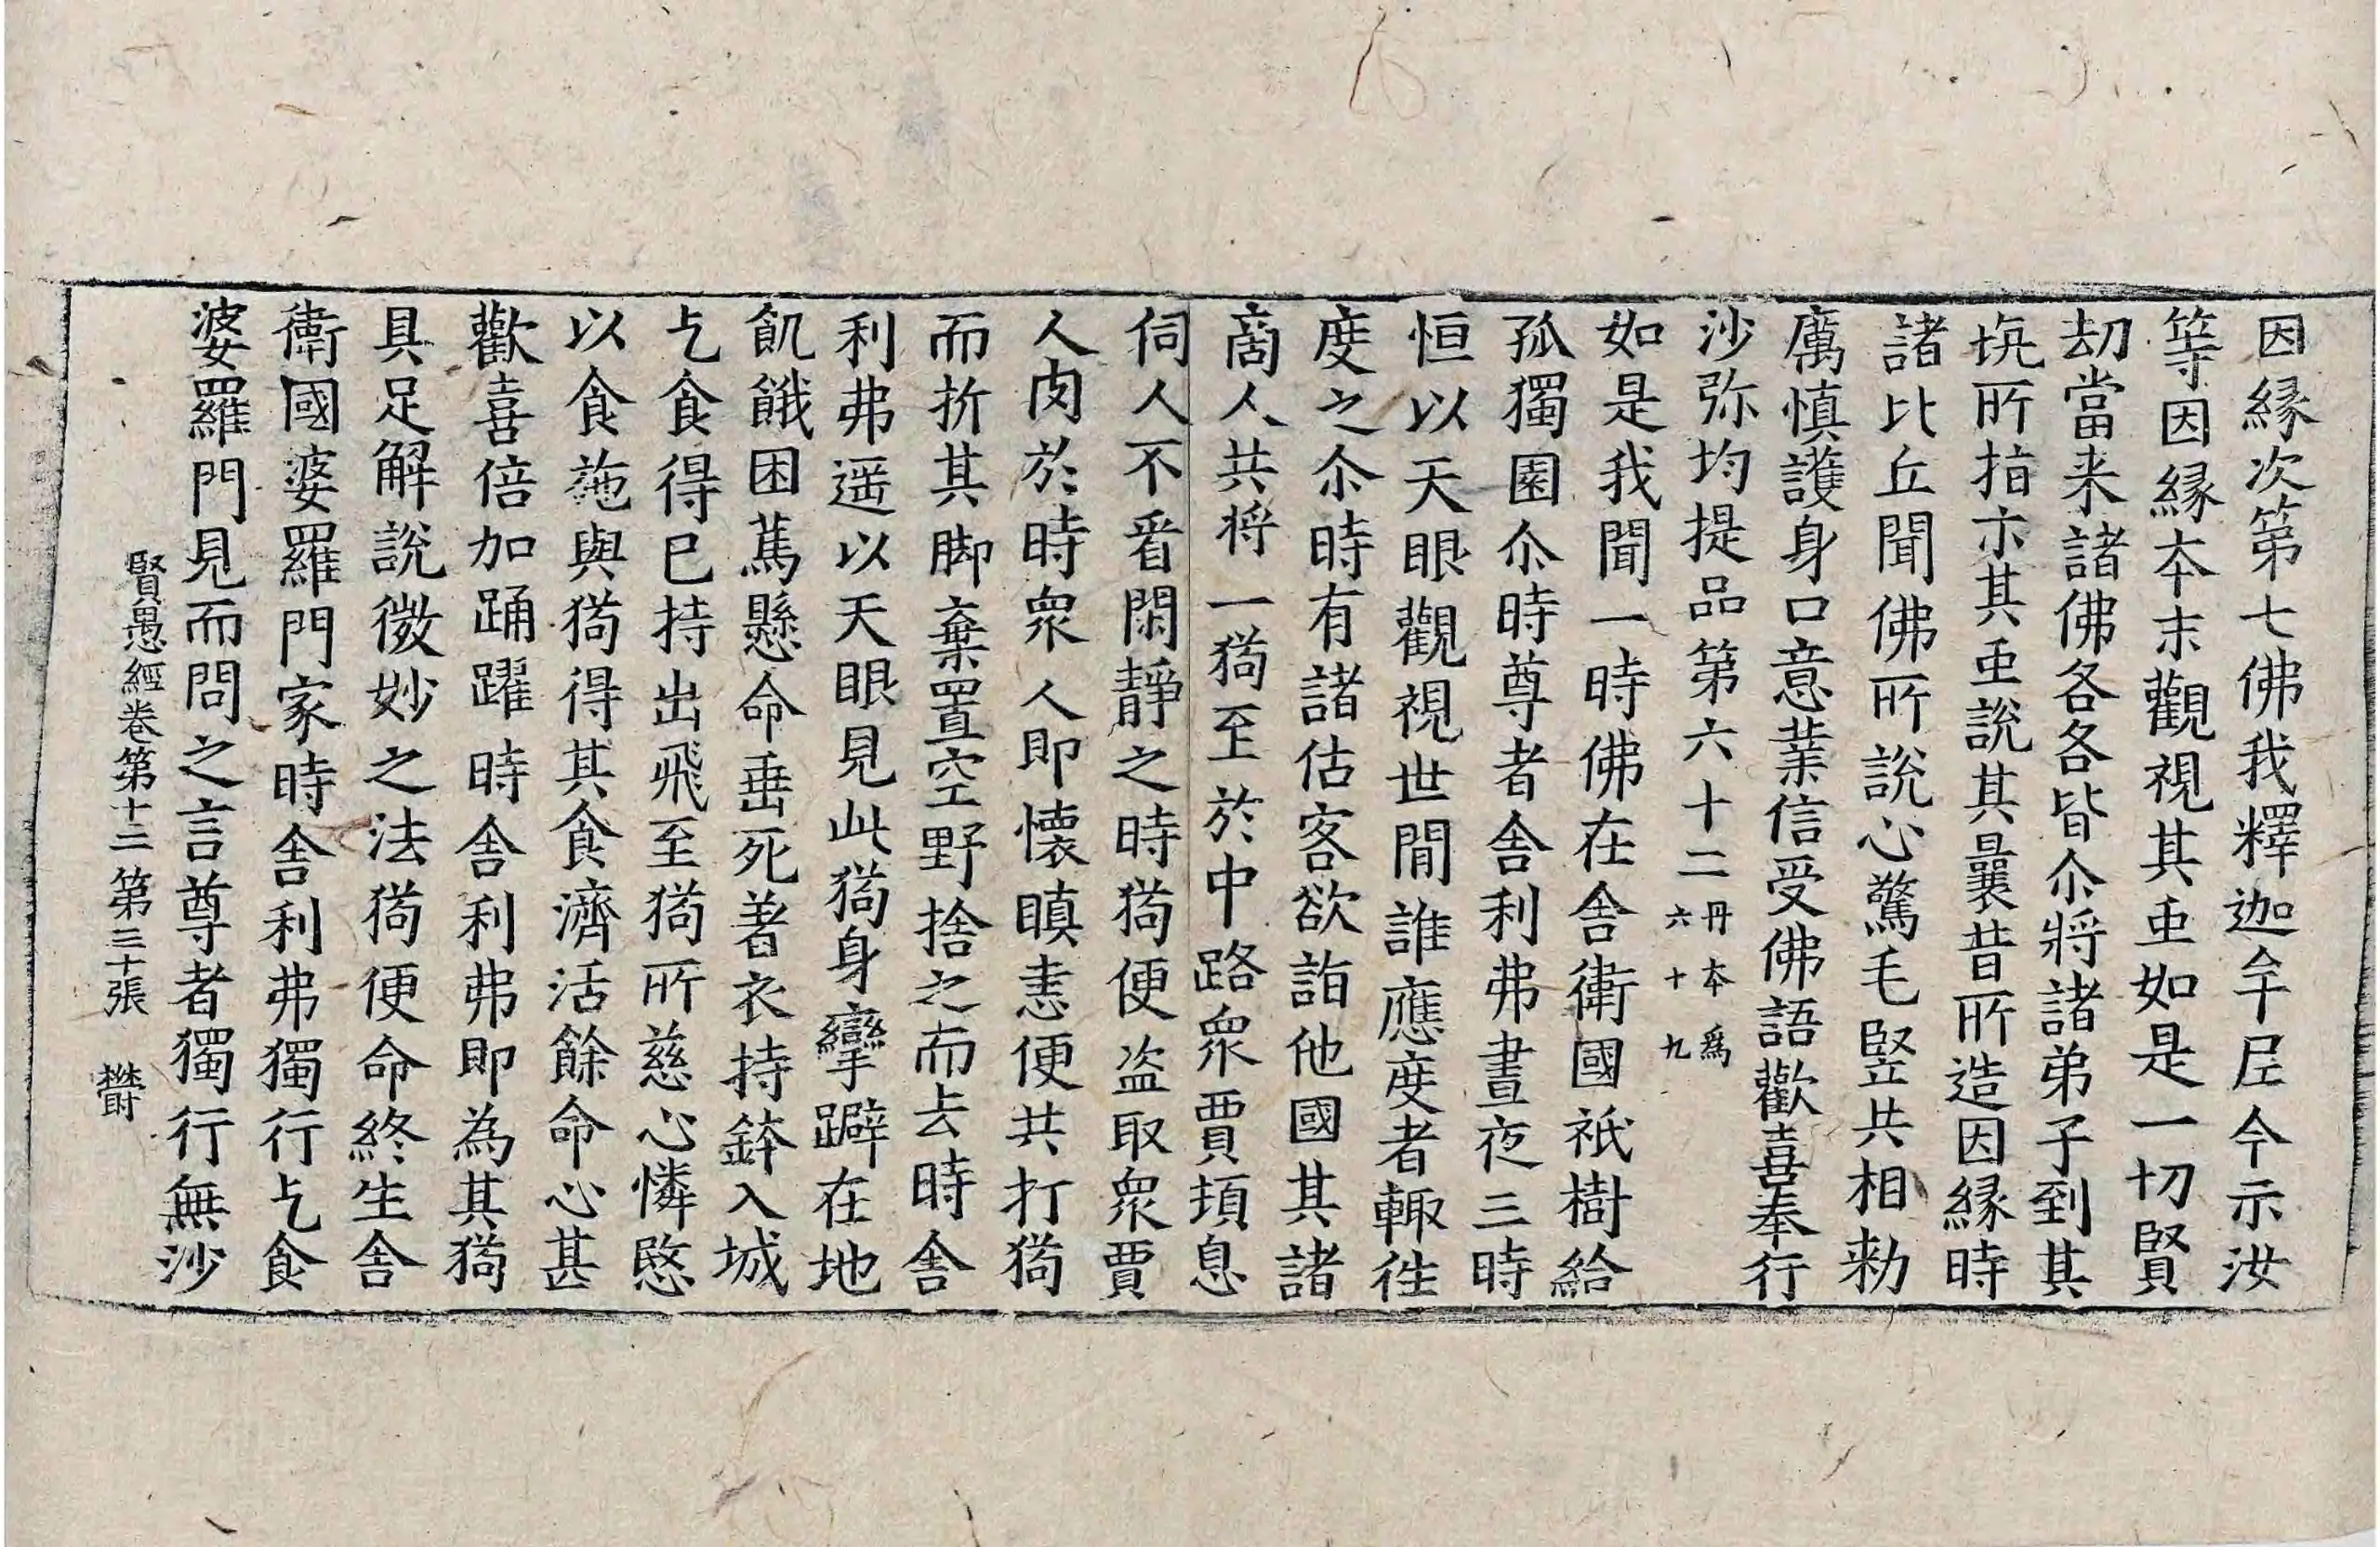 因緣次第七佛我釋迦牟尼今示汝
等因緣本末觀視其重如是一切賢
劫當来諸佛各各皆尒將諸弟子到其
坑所指示其虫說其曩昔所造因緣時
諸比丘聞佛所說心驚毛竪共相勑
厲慎護身口意業信受佛語歡喜奉行
沙弥均提品第六十二丹本爲六十九
如是我聞一時佛在舍衛國祇樹給
孤獨園尒時尊者舍利弗晝夜三時
恒以天眼觀視世間誰應度者輙徃
度之尒時有諸估客欲詣他國其諸
商人共將一猗至於中路衆賈頓息
伺人不看閑靜之時狗便盗取衆賈
人肉於時衆人即懷瞋恚便共打狗
而折其脚棄置空野捨之而去時舍
利弗遥以天眼見此狗身攣躃在地
飢餓困萬懸命垂死著衣持鉢入城
乞食得已持出飛至狗所慈心憐愍
以食施與狗得其食濟活餘命心甚
歡喜倍加踊躍時舍利弗即為其狗
具足解說微妙之法狗便命終生舍
衛國婆羅門家時舍利弗獨行乞食
婆羅門見而問之言尊者獨行無沙
賢愚經卷第十三 第三十張 欝